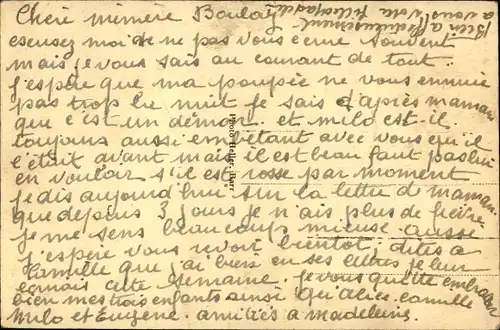 Chère mémère Boulay
escusez moi de ne pas vous écrire souvent
mais je vous sais au courant de tout.
j'espère que ma poupée ne vous ennuie
pas trop la nuit je sais d'après maman
que c'est un démon. et milo est-il
toujours aussi embêtant avec vous qu'il
l'était avant mais il est beau faut pas lui
en vouloir s'il est rosse par moment
je dis aujourd'hui sur la lettre d maman
que depuis 3 jours je n'ais plus de fièvre
je me sens beaucoup mieuse aussi
j'espère vous revoir bientôt. dites a
Camille que j'ai bien eu ses lettres je leur
écrirais cette semaine. je vous quitte embrasse
bien mes trois enfants ainsi qu'alice. camille
Milo et Eugène. amitiés a madeleine.
Bien affectueusement
a vous votre
Photo Heller, Barr